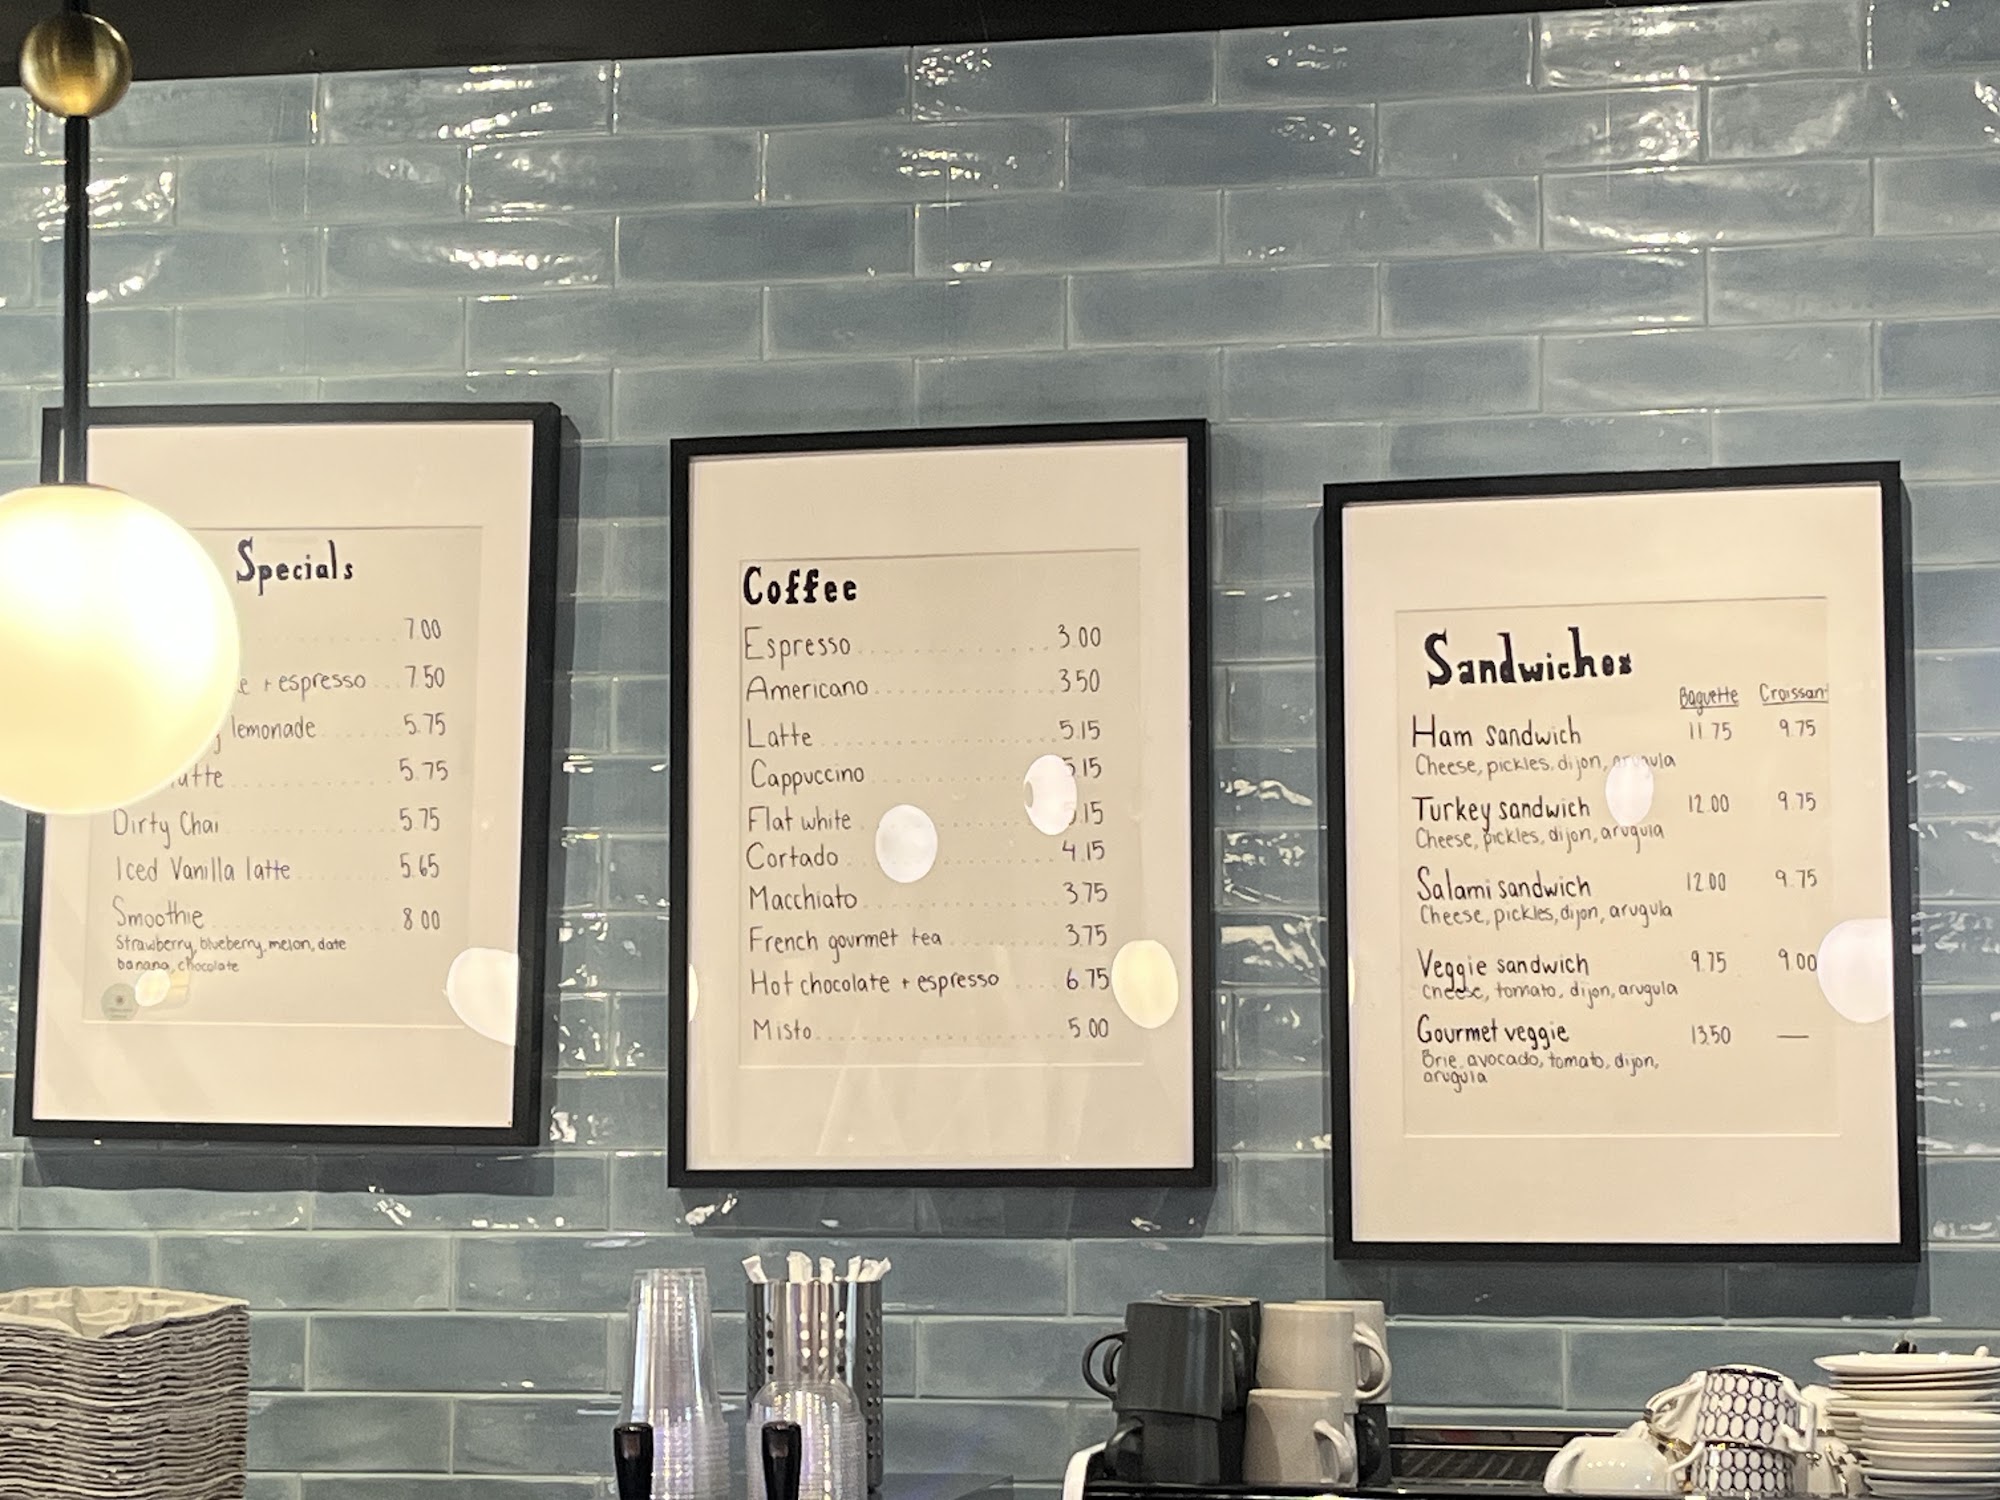 Specials
7.00
+ espresso ... 7.50
lemonade 5.75
5.75
Dirty Chai 5.75
Iced Vanilla latte 5.65
Smoothie 8.00
Strawberry, blueberry, melon, date
banana, chocolate
Coffee
Espresso 3.00
Americano 3.50
Latte 5.15
Cappuccino 5.15
Flat white .15
Cortado 4.15
Macchiato 3.75
French gourmet tea 3.75
Hot chocolate + espresso 6.75
Misto 5.00
Sandwiches
Baguette Croissant
Ham sandwich 11.75 9.75
Cheese, pickles, dijon, arugula
Turkey sandwich 12.00 9.75
Cheese, pickles, dijon, arugula
Salami sandwich 12.00 9.75
Cheese, pickles, dijon, arugula
Veggie sandwich 9.75 9.00
Cheese, tomato, dijon, arugula
Gourmet veggie 13.50 —
Brie, avocado, tomato, dijon,
arugula